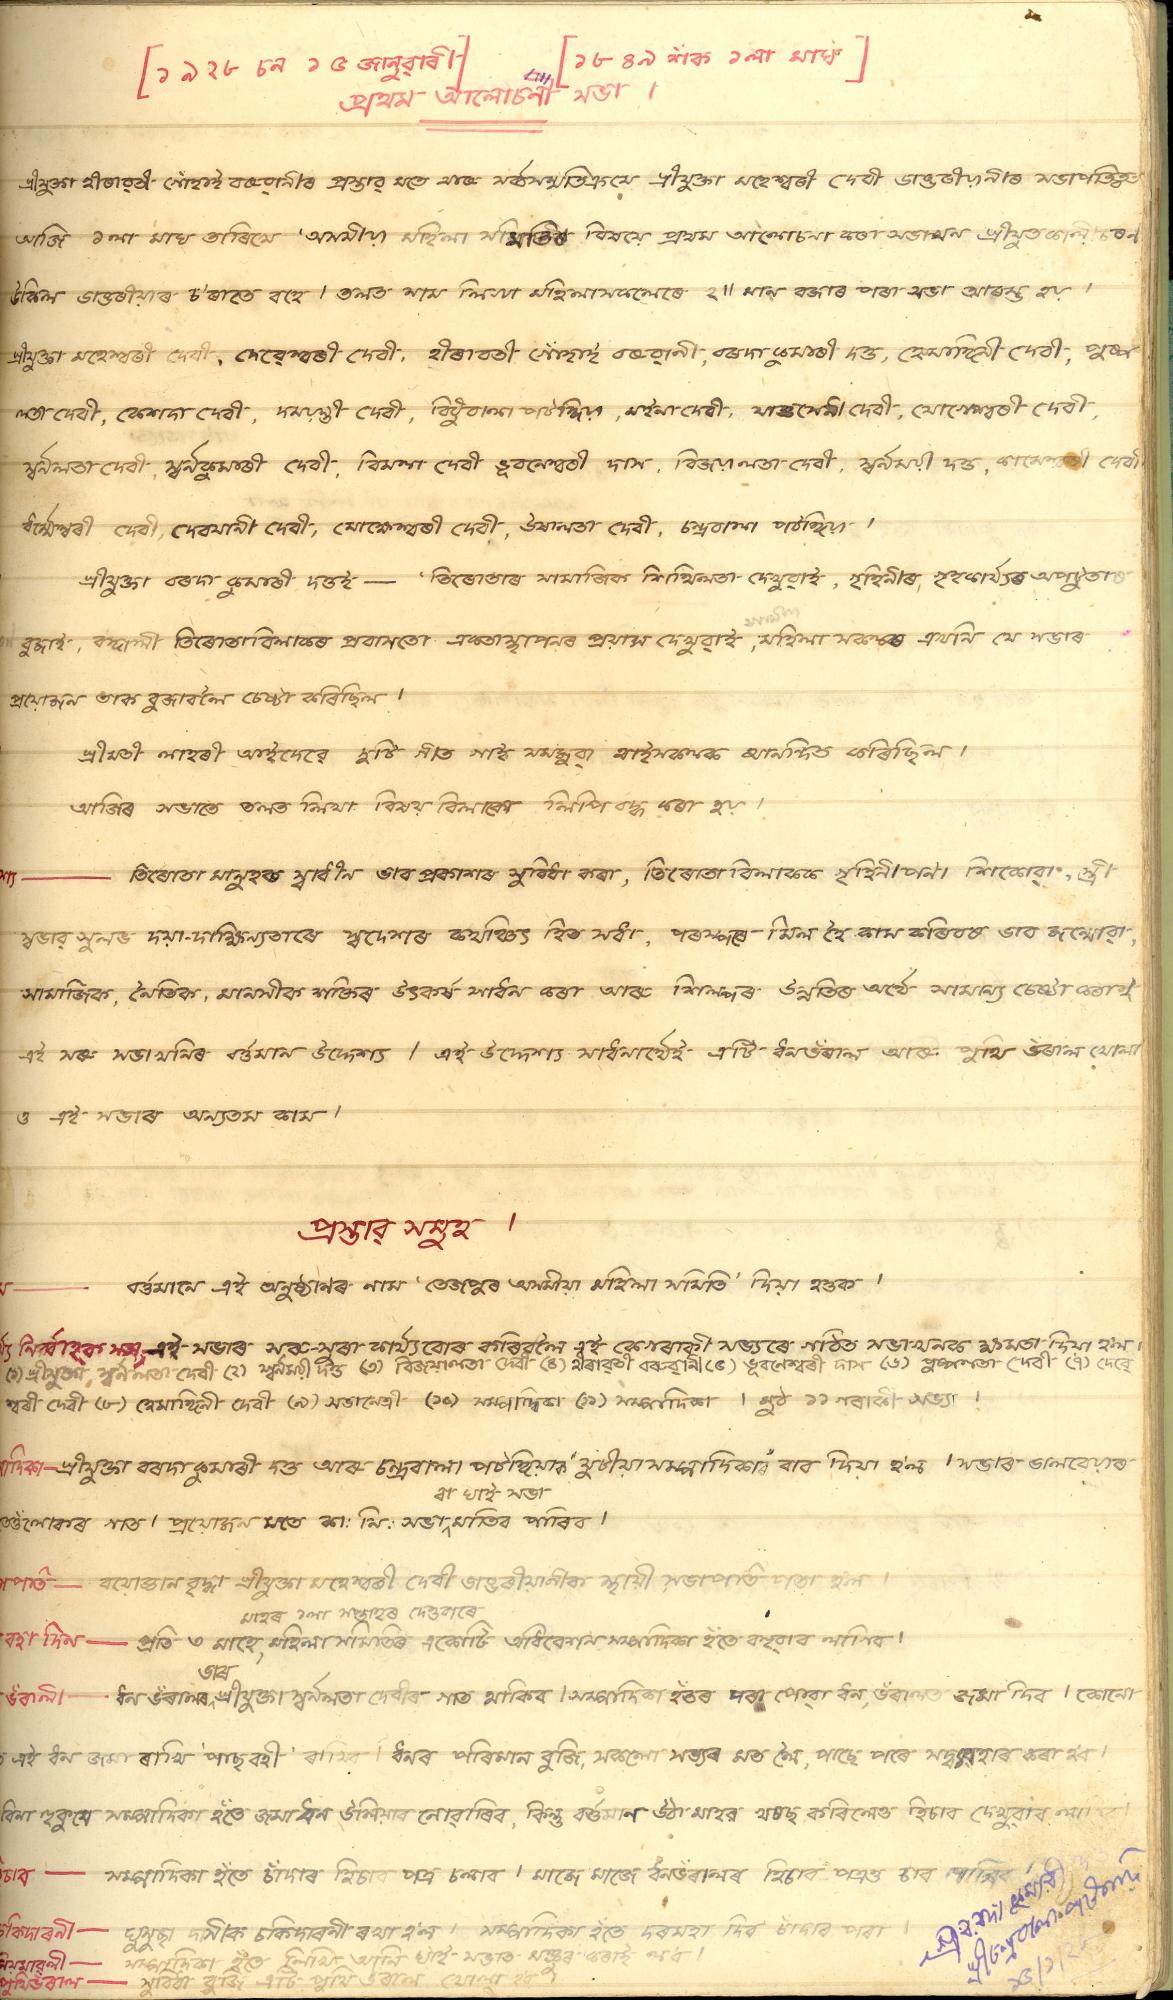 [১৯২৮ চন ১৫ জানুৱাৰী] [১৮৪৯ শঁক ১লা মাঘ]
প্ৰথম আলোচনী সভা ।
শ্ৰীযুক্তা হীৰাৱতী গোঁহাই বৰুৱানীৰ প্ৰস্তাৱ মতে আৰু সৰ্ব্বসন্মতিক্ৰমে শ্ৰীযুক্তা মহেশ্বৰী দেবী ডাক্তৰীয়নীৰ
আজি ১লা মাঘ তাৰিখে 'অসমীয়া মহিলা সমিতিৰ বিষয়ে প্ৰথম আলোচনা কৰা সভাখন শ্ৰীযুত
উকিল ডাক্তৰীয়াৰ চ'ৰাতে বহে । তলত নাম লিখা মহিলাসকলেৰে ২॥ মান বজাৰ পৰা সভা আৰম্ভ হয় ।
শ্ৰীযুক্তা মহেশ্বৰী দেবী, দেৱেশ্বৰী দেবী, হীৰাবতী গোঁহাই বৰুৱানী, বৰদা কুমাৰী দত্ত, হেমাঙ্গিনী দেবী, পুষ্প
লতা দেবী, কেশদা দেবী, দময়ন্তী দেবী, বিধুবালা পাটঙ্গিয়া, মইনা দেবী, দেবী, যোগেশ্বৰী দেবী,
স্বৰ্নলতা দেবী, স্বৰ্নকুমাৰী দেবী, বিমলা দেবী ভূবনেশ্বৰী দাস, বিজয়লতা দেবী, স্বৰ্নময়ী দত্ত, কামেশ্বৰী দেবী
ধৰ্ম্মেশ্বৰী দেবী, দেবযানী দেবী, মোক্ষেশ্বৰী দেবী, ঊষালতা দেবী, চন্দ্ৰবালা পাটঙ্গিয়া ।
শ্ৰীযুক্তা বৰদা কুমাৰী দত্তই — 'তিৰোতাৰ সামাজিক শিথিলতা দেখুৱাই, গৃহিনীৰ, গৃহকাৰ্য্যৰ অপটুতাৰ
বুজাই, বঙ্গালী তিৰোতাবিলাকৰ প্ৰবাসতো একতাস্থাপনৰ প্ৰয়াস দেখুৱাই, মহিলা সকলৰ এখনি যে সভাৰ
প্ৰয়োজন তাক বুজাবলৈ চেষ্টা কৰিছিল ।
শ্ৰীমতী লাহৰী আইদেৱে দুটি গীত গাই সমজুৱা ৰাইসকলক আনন্দিত কৰিছিল ।
আজিৰ সভাতে তলত লিখা বিষয় বিলাকো লিপি বদ্ধ কৰা হয় ।
— তিৰোতা মানুহৰ স্বাধীন ভাব প্ৰকাশৰ সুবিধা কৰা, তিৰোতা বিলাকক গৃহিনীপনা শিকোৱা, স্ত্ৰী
স্বভাৱ সুলভ দয়া-দাক্ষিন্যতাৰে স্বদেশৰ কথঞ্চিৎ হিত সধা, পৰস্পৰে মিল হৈ কাম কৰিবৰ ভাব জন্মোৱা,
সামাজিক, নৈতিক, মানসীক শক্তিৰ উৎকৰ্ষ সাধন কৰা আৰু শিল্পৰ উন্নতিৰ অৰ্থে সামান্য চেষ্টা কৰাই
এই সৰু সভাখনিৰ বৰ্ত্তমান উদ্দেশ্য । এই উদ্দেশ্য সাধনাৰ্থেই এটি ধনভঁৰাল আৰু পুথি ভঁৰাল খোলা
ও এই সভাৰ অন্যতম কাম ।
প্ৰস্তাৱ সমূহ ।
— বৰ্ত্তমানে এই অনুষ্ঠানৰ নাম 'তেজপুৰ অসমীয়া মহিলা সমিতি' দিয়া হওক ।
নিৰ্ব্বাহক সভা, এই সভাৰ সৰু-সুৰা কাৰ্য্যবোৰ কৰিবলৈ এই কেগৰাকী সভ্যাৰে গঠিত সভাখনক ক্ষমতা দিয়া হ'ল ।
(১) শ্ৰীযুক্তা, স্বৰ্নলতা দেবী (২) স্বৰ্নময়ী দত্ত (৩) বিজয়ালতা দেবী (৪) হীৰাৱতী বৰুৱানী (৫) ভূবনেশ্বৰী দাস (৬) পুষ্পলতা দেবী (৭) দেৱে
শ্বৰী দেবী (৮) হেমাঙ্গিনী দেবী (৯) সভানেত্ৰী (১০) সম্পাদিকা (১১) সম্পাদিকা । মুঠ ১১ গৰাকী সভ্যা ।
—শ্ৰীযুক্তা বৰদা কুমাৰী দত্ত আৰু চন্দ্ৰবালা পাটঙ্গিয়াৰ যুটীয়া সম্পাদিকাৰ বাব দিয়া হ'ল । সভাৰ ভালবেয়াৰ
বা খাই সভা
গাত । প্ৰয়োজন মতে কা: নি: সভা মাতিব পাৰিব ।
— বয়োজ্ঞান বৃদ্ধা শ্ৰীযুক্তা মহেশ্বৰী দেবী ডাক্তৰীয়ানীক স্থায়ী সভাপতি পতা হ'ল ।
মাহৰ ১লা সপ্তাহৰ দেওবাৰে
বহা দিন — প্ৰতি ৩ মাহে, মহিলা সমিতিৰ একোটি অধিবেশন সম্পাদিকা হঁতে বহুৱাব লাগিব ।
ভাৰ
ভঁৰালী — ধন ভঁৰালৰ, শ্ৰীযুক্তা স্বৰ্নলতা দেবীৰ গাত থাকিব । সম্পাদিকা হঁতৰ পৰা পোৱা ধন, ভঁৰালত জমা দিব । কোনো
এই ধন জমা ৰাখি 'পাছ বহী' ৰাখিব । ধনৰ পৰিমান বুজি, সকলো সভ্যৰ মত লৈ, পাছে পৰে সদ্ব্যৱহাৰ কৰা হ'ব ।
বিনা হুকুমে সম্পাদিকা হঁতে জমা ধন উলিয়াব নোৱাৰিব, কিন্তু বৰ্ত্তমান উঠা মাহৰ খৰছ কৰিলেও হিচাব দেখুৱাব লাগিব ।
— সম্পাদিকা হঁতে চাঁদাৰ হিচাব পত্ৰ চলাব । মাজে মাজে ধনভঁৰালৰ হিচাব পত্ৰও চাব লাগিব ।
চকিদাৰনী — ঘুনুচা দাসীক চকিদাৰনী ৰখা হ'ল । সম্পাদিকা হঁতে দৰমহা দিব চাঁদাৰ পৰা ।
— সম্পাদিকা হঁতে লিখি আনি খাই সভাত মঞ্জুৰ কৰাই ল'ব ।
পুথিভঁৰাল — সুবিধা বুজি এটি পুথি ভঁৰাল খোলা হ'ব ।
শ্ৰীবৰদা কুমাৰী
শ্ৰীচন্দ্ৰবালা